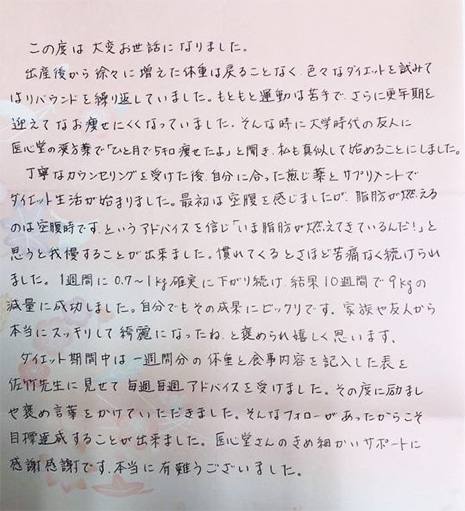 この度は大変お世話になりました。
出産後から徐々に増えた体重は戻ることなく、色々なダイエットを試みて
はリバウンドを繰り返していました。もともと運動は苦手で、さらに更年期を
迎えてなお痩せにくくなっていました。そんな時に大学時代の友人に
医心堂の漢方薬で「ひと月で5キロ痩せたよ」と聞き、私も真似して始めることにしました。
丁寧なカウンセリングを受けた後、自分に合った煎じ薬とサプリメントで
ダイエット生活が始まりました。最初は空腹を感じましたが、脂肪が燃える
のは空腹時です、というアドバイスを信じ「いま脂肪が燃えてきているんだ!」と
思うと我慢することが出来ました。慣れてくるとさほど苦痛なく続けられ
ました。1週間に0.7~1kg確実に下がり続け、結果10週間で9kgの
減量に成功しました。自分でもその成果にビックリです。家族や友人から
本当にスッキリして綺麗になったね、と褒められ嬉しく思います。
ダイエット期間中は一週間分の体重と食事内容を記入した表を
佐竹先生に見せて毎週毎週アドバイスを受けました。その度に励まし
や褒め言葉をかけていただきました。そんなフォローがあったからこそ
目標達成することが出来ました。医心堂さんのきめ細かいサポートに
感謝感謝です、本当に有難うございました。